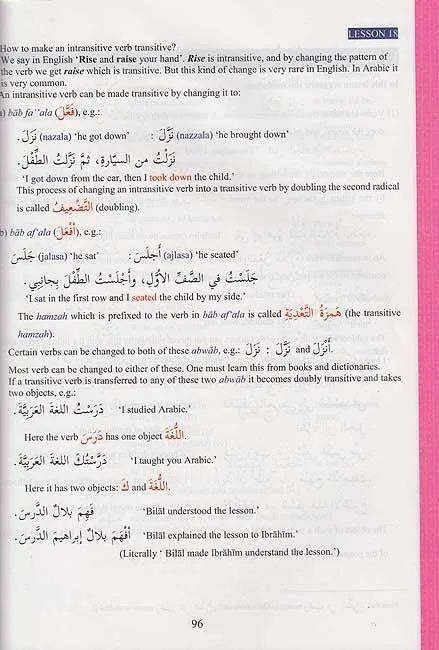 LESSON 18
How to make an intransitive verb transitive?
We say in English 'Rise and raise your hand'. Rise is intransitive, and by changing the pattern of
the verb we get raise which is transitive. But this kind of change is very rare in English. In Arabic it
is very common.
An intransitive verb can be made transitive by changing it to:
a) bāb fa''ala (فَعَّلَ), e.g.:
نَزَلَ (nazala) 'he got down' : نَزَّلَ (nazzala) 'he brought down'
نَزَلْتُ من السيّارةِ، ثمَّ نَزَّلتُ الطِّفْلَ.
'I got down from the car, then I took down the child.'
This process of changing an intransitive verb into a transitive verb by doubling the second radical
is called التَّضْعِيفُ (doubling).
b) bāb af'ala (أَفْعَلَ), e.g.:
جَلَسَ (jalasa) 'he sat' : أَجلَسَ (ajlasa) 'he seated'
جَلَسْتُ في الصَّفِّ الأَوَّلِ، وأَجْلَسْتُ الطِّفْلَ بِجانِبِي.
'I sat in the first row and I seated the child by my side.'
The hamzah which is prefixed to the verb in bāb af'ala is called هَمزَةُ التَّعْدِيَةِ (the transitive
hamzah).
Certain verbs can be changed to both of these abwāb, e.g.: نَزَلَ : نَزَّلَ and أَنْزَلَ.
Most verb can be changed to either of these. One must learn this from books and dictionaries.
If a transitive verb is transferred to any of these two abwāb it becomes doubly transitive and takes
two objects, e.g.:
دَرَسْتُ اللغةَ العَرَبِيَّةَ. 'I studied Arabic.'
Here the verb دَرَسَ has one object اللُّغَةَ.
دَرَّسْتُكَ اللغةَ العَرَبِيَّةَ. 'I taught you Arabic.'
Here it has two objects: كَ and اللُّغَةَ.
فَهِمَ بلالٌ الدَّرسَ. 'Bilāl understood the lesson.'
أَفْهَمَ بلالٌ إبراهيمَ الدَّرسَ. 'Bilāl explained the lesson to Ibrāhīm.'
(Literally ' Bilāl made Ibrāhīm understand the lesson.')
96